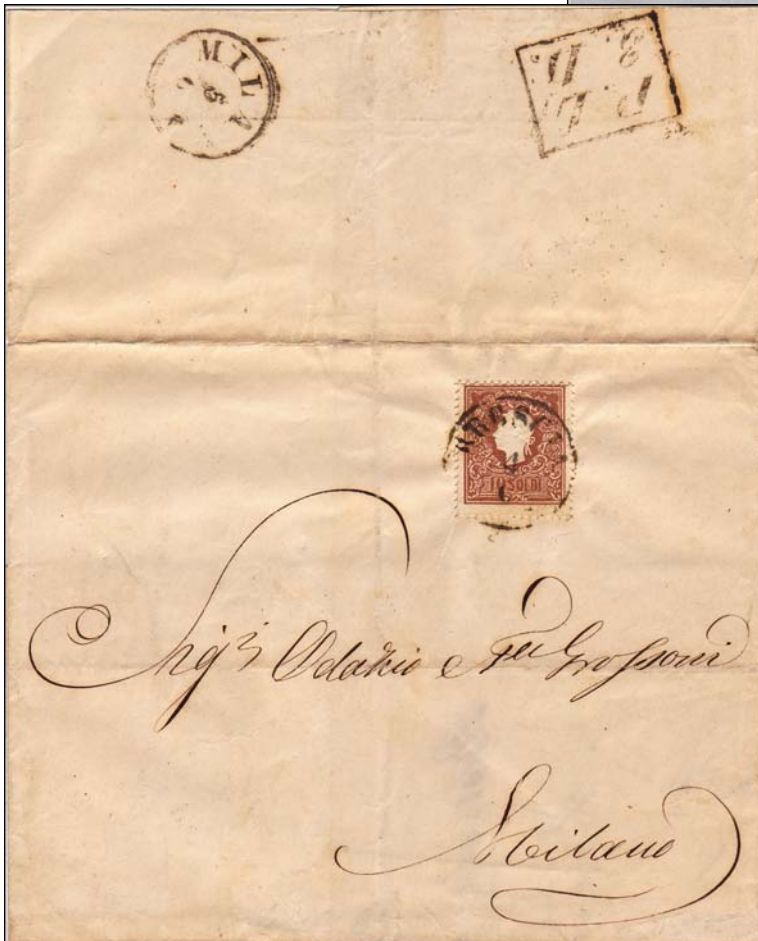 MILA
5
BRESCIA
4
10 SOLDI
Sigri Odazio e Flli Grossoni
Milano